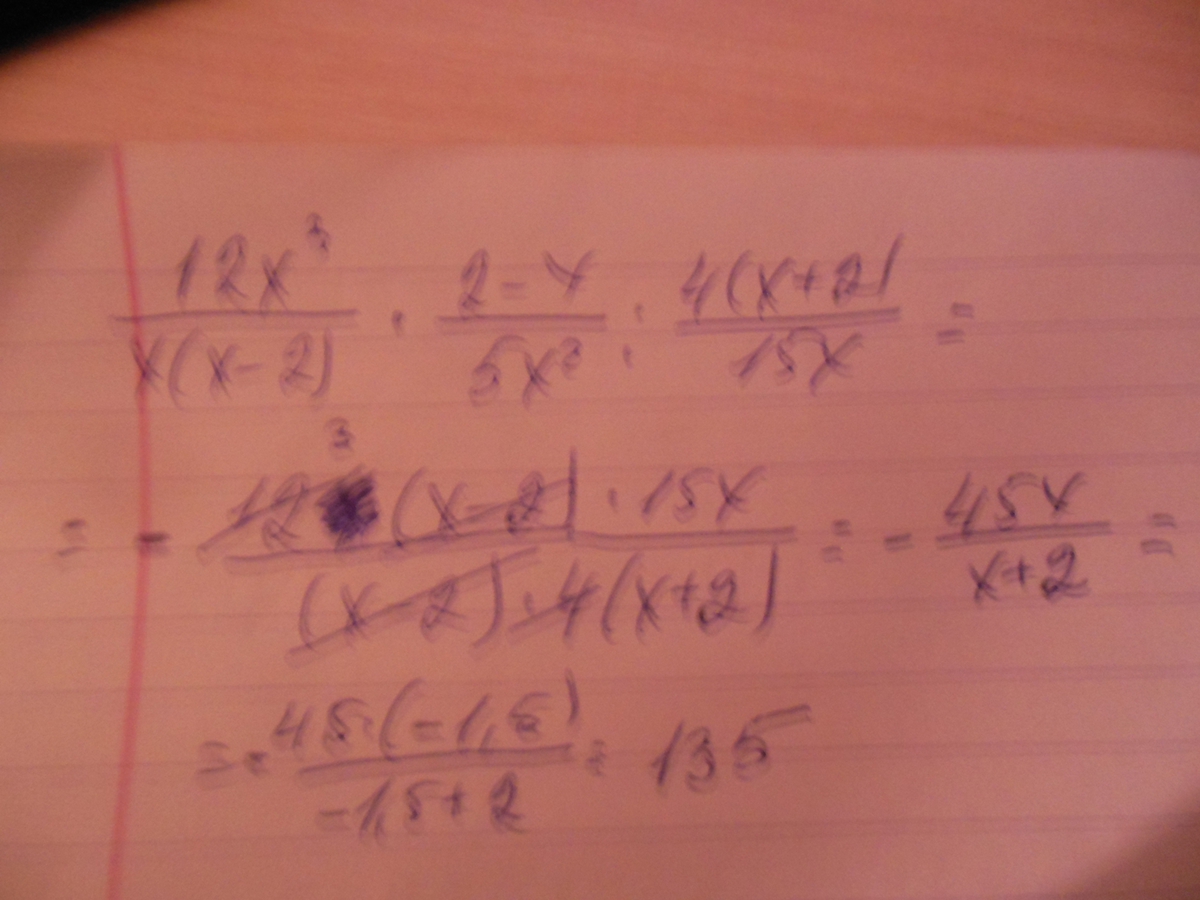 12x³/x(x-2) · 2-x/5x³ : 4(x+2)/15x =
= - 12 (x-2) · 15x/(x-2) · 4(x+2) = - 45x/x+2 =
= - 45·(-1,5)/-1,5+2 = 135